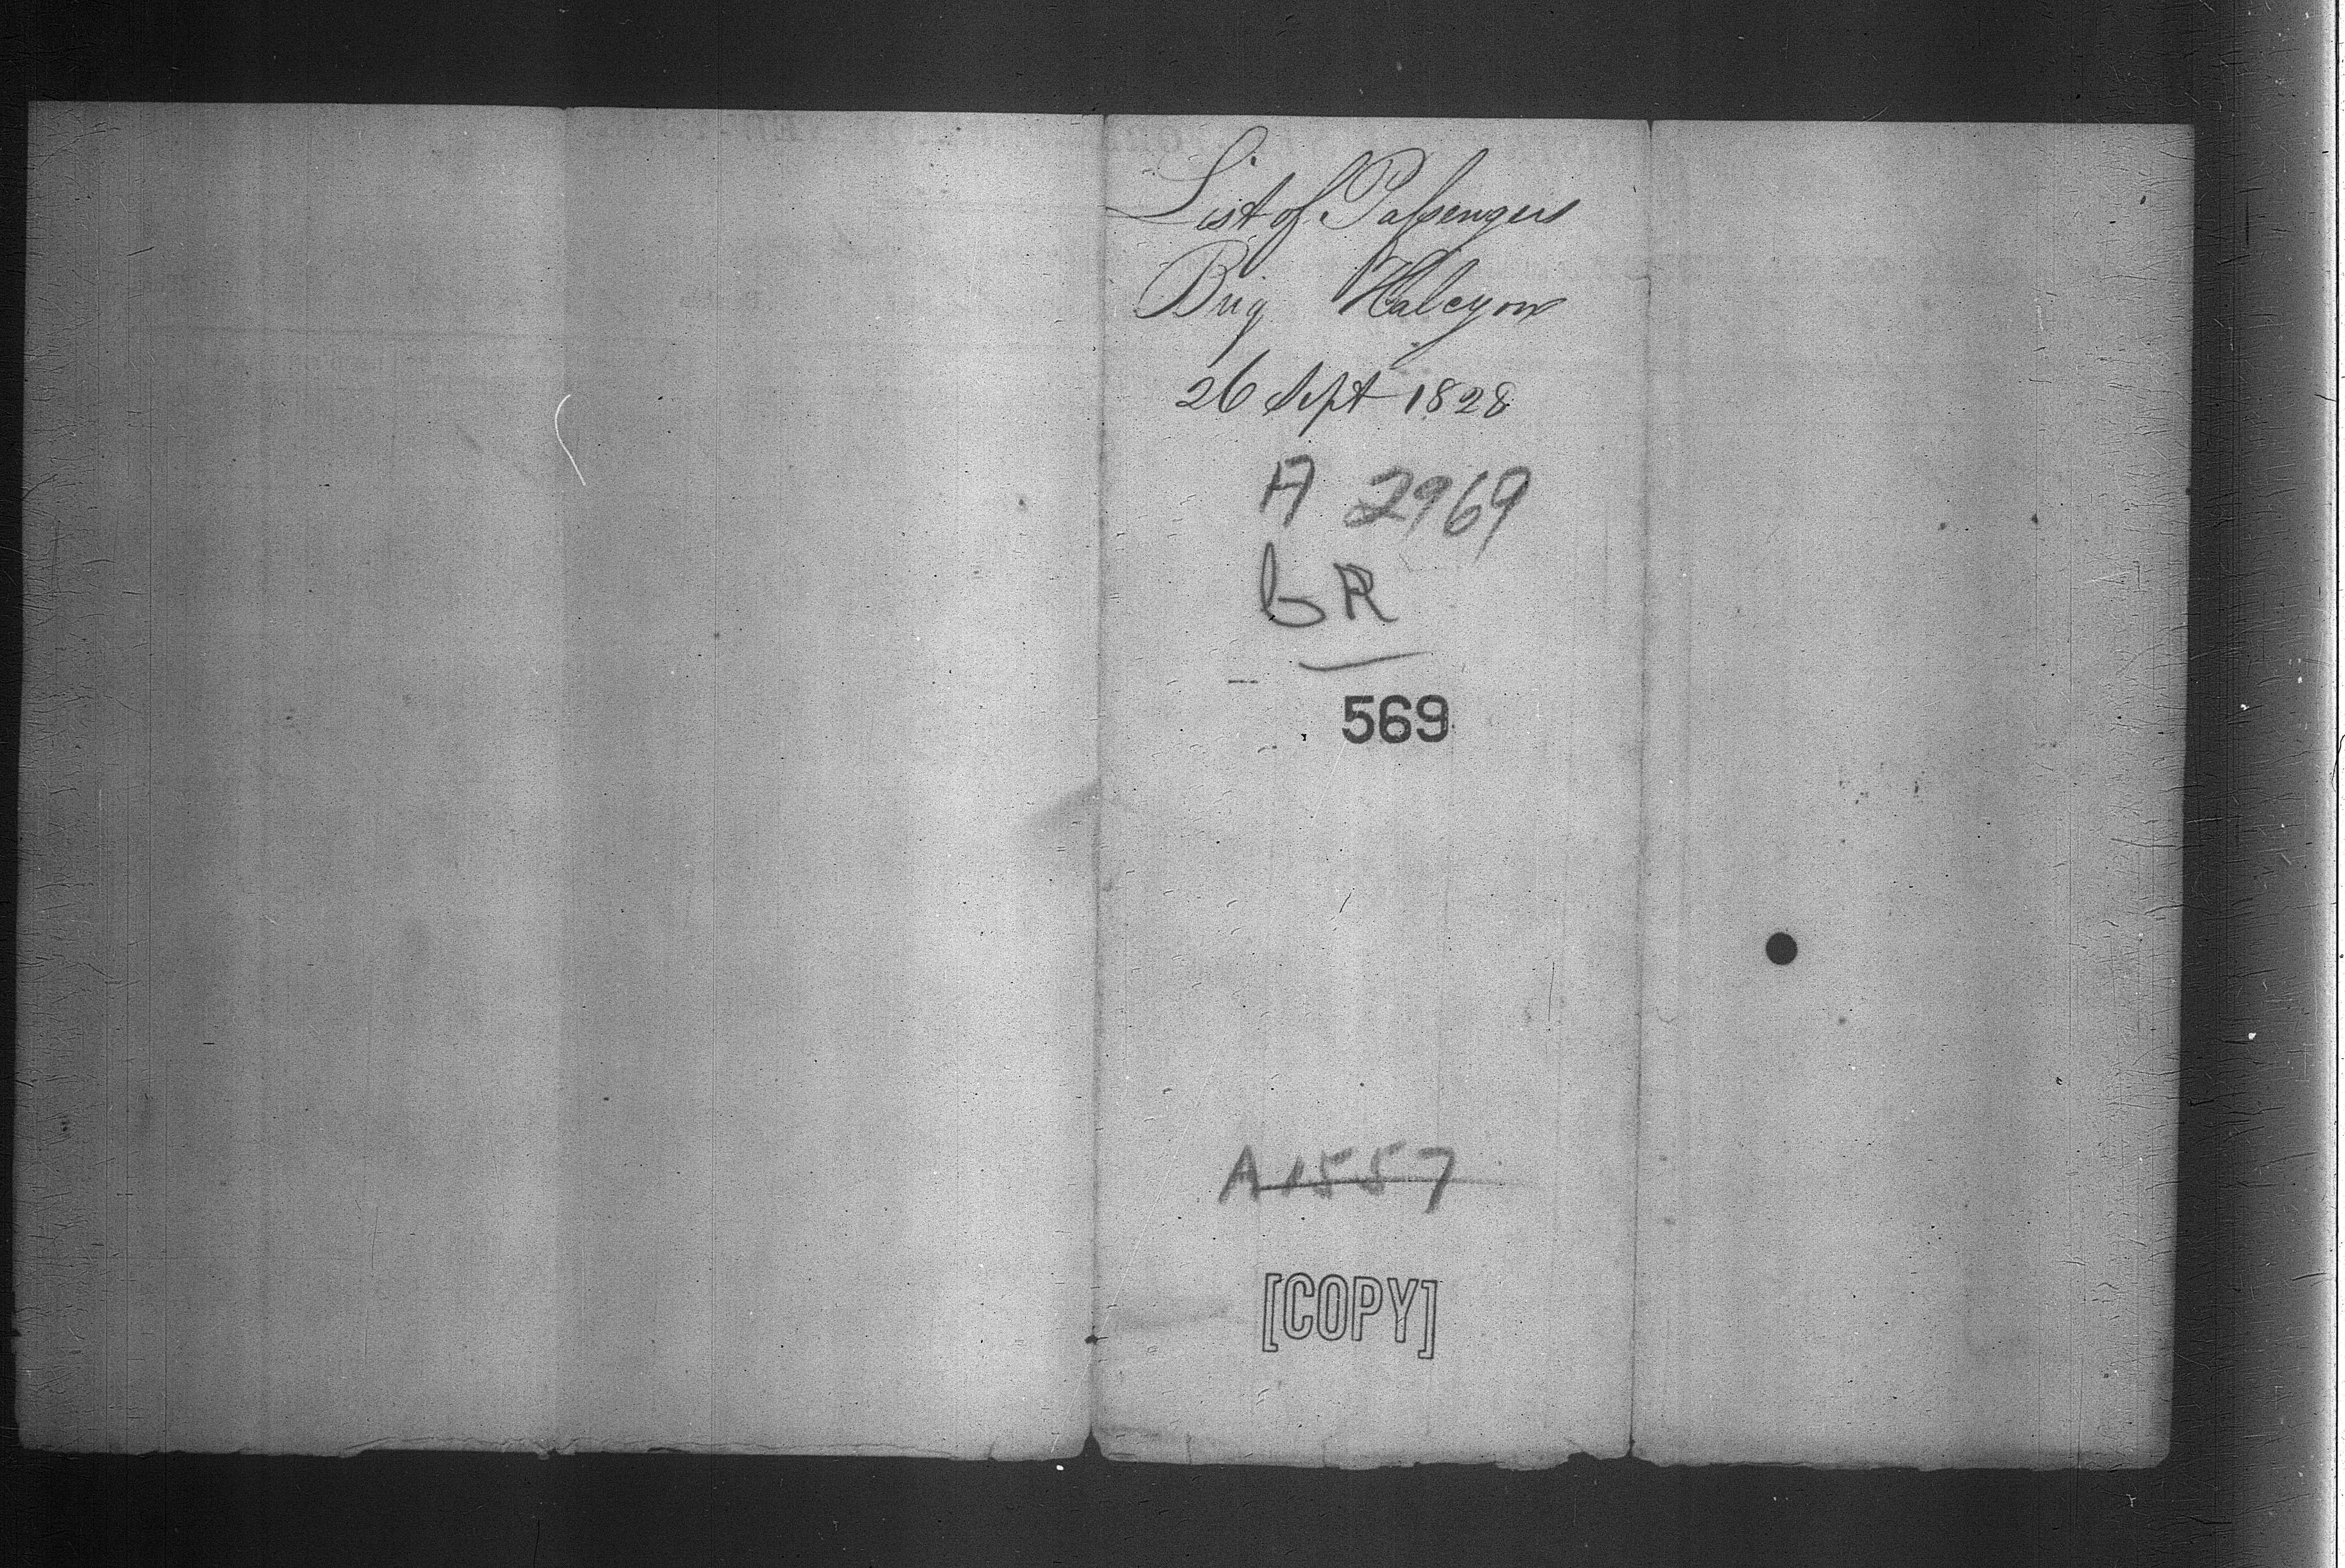 List of Passengers
Brig Halcyon
26 Sept 1828
A 2969
bR
569
A 1557
[COPY]